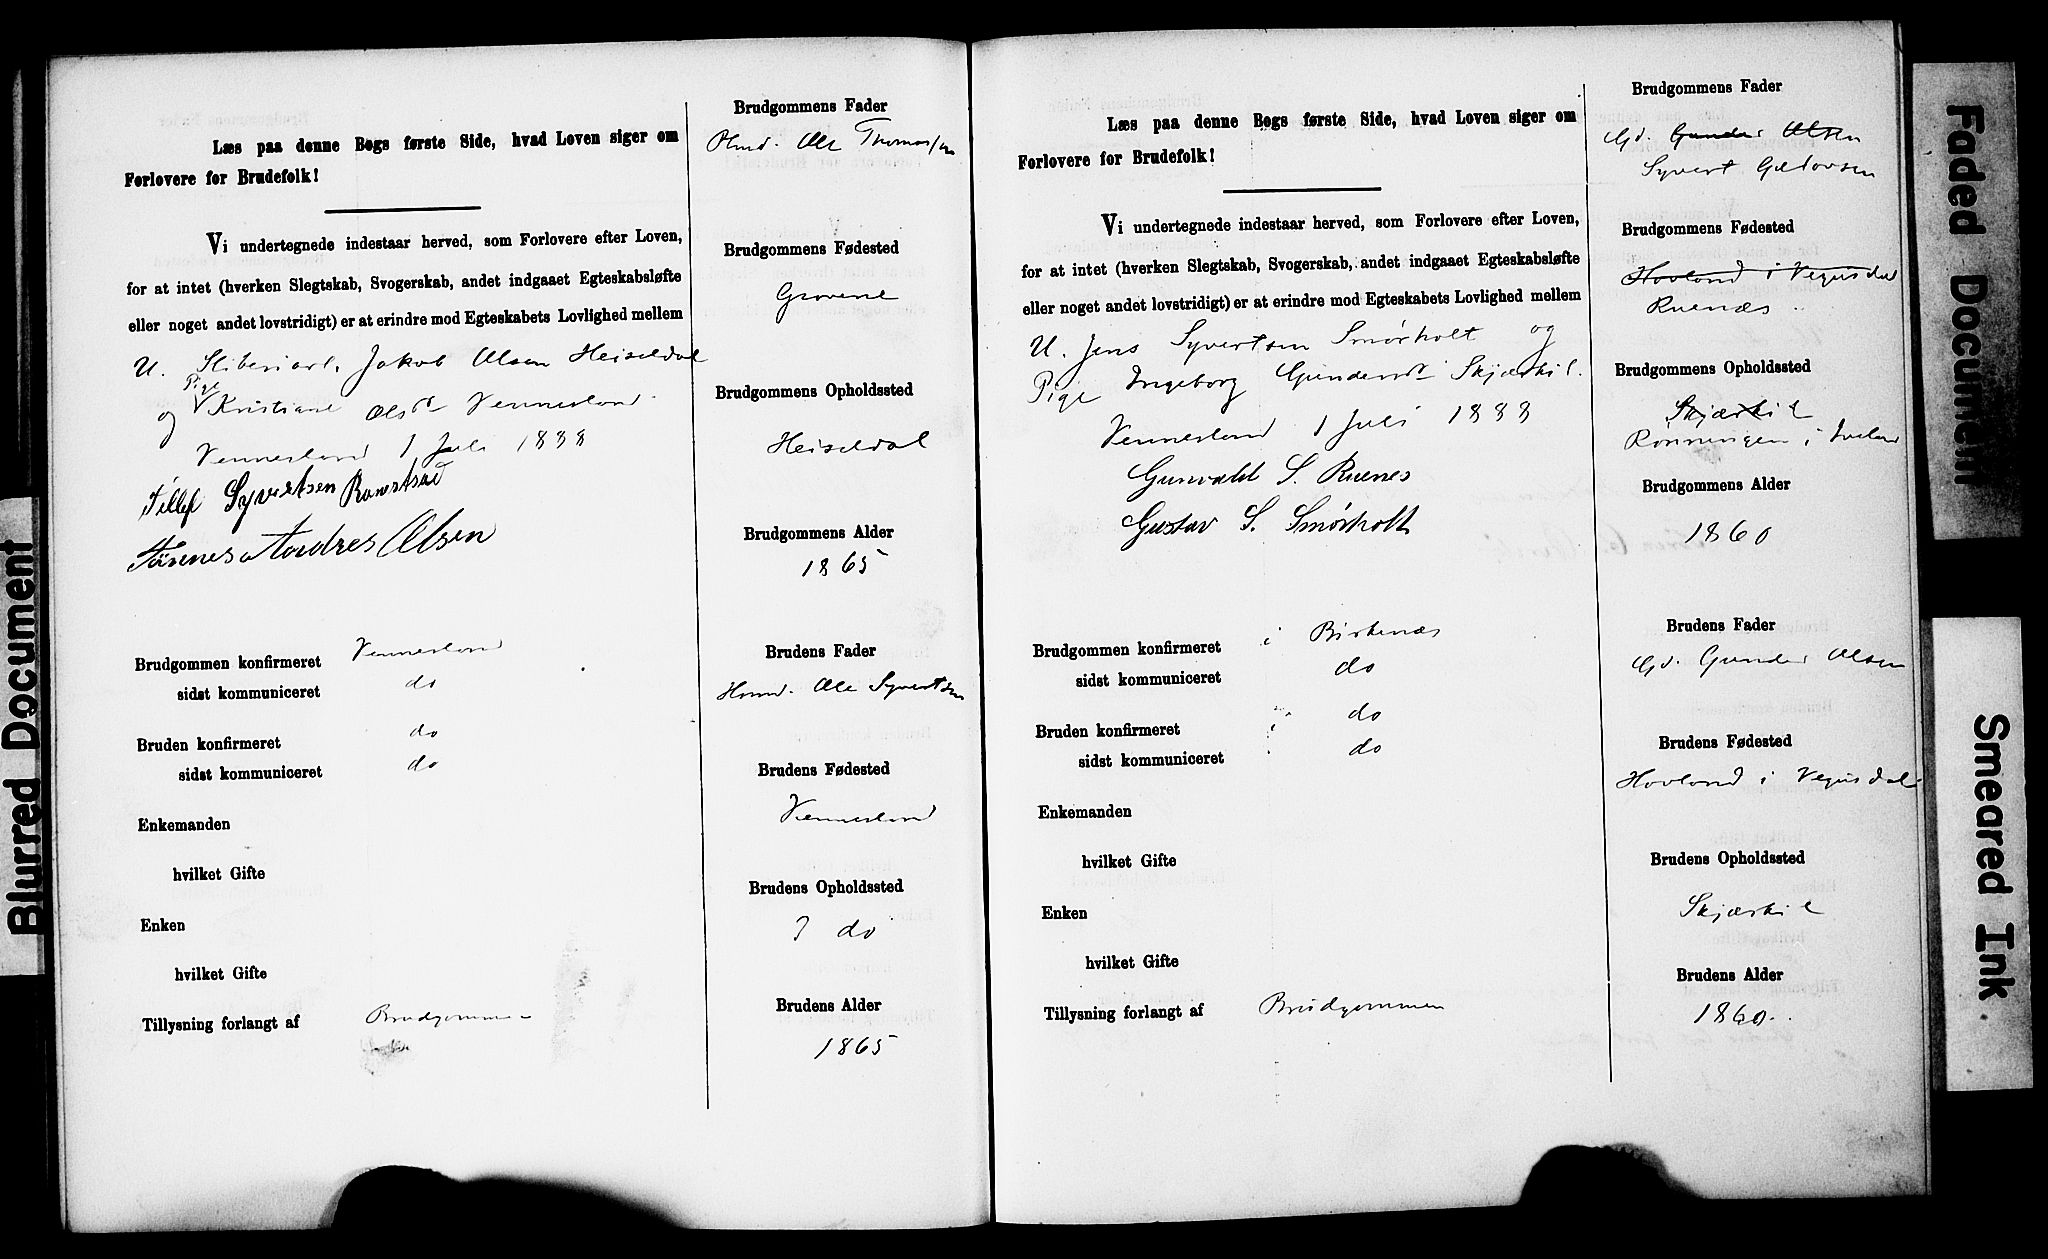 Blurred Document
Læs paa denne Bogs første Side, hvad Loven siger om
Forlovere for Brudefolk!
Vi undertegnede indestaar herved, som Forlovere efter Loven,
for at intet (hverken Slegtskab, Svogerskab, andet indgaaet Egteskabsløfte
eller noget andet lovstridigt) er at erindre mod Egteskabets Lovlighed mellem
U. Jakob Olsen Heiseldal
og Pige Kristiane Olsdr Vennesland
Vennesland 1 Juli 1888
Tellef Syvertsen
Andres Olsen
Brudgommen konfirmeret Vennesland
sidst kommuniceret do
Bruden konfirmeret do
sidst kommuniceret do
Enkemanden
hvilket Gifte
Enken
hvilket Gifte
Tillysning forlangt af Brudgommen
Brudgommens Fader
Ole Thomassen
Brudgommens Fødested
Grovene
Brudgommens Opholdssted
Heiseldal
Brudgommens Alder
1865
Brudens Fader
Ole Syvertsen
Brudens Fødested
Vennesland
Brudens Opholdssted
do
Brudens Alder
1865
Læs paa denne Bogs første Side, hvad Loven siger om
Forlovere for Brudefolk!
Vi undertegnede indestaar herved, som Forlovere efter Loven,
for at intet (hverken Slegtskab, Svogerskab, andet indgaaet Egteskabsløfte
eller noget andet lovstridigt) er at erindre mod Egteskabets Lovlighed mellem
U. Jens Syvertsen Smørholt og
Pige Ingeborg Gundersdr Skjærkil.
Vennesland 1 Juli 1888
Gunvald S. Ruenes
Gustav S. Smørholt
Brudgommen konfirmeret i Birkenæs
sidst kommuniceret do
Bruden konfirmeret i do
sidst kommuniceret do
Enkemanden
hvilket Gifte
Enken
hvilket Gifte
Tillysning forlangt af Brudgommen
Brudgommens Fader
Gd. Gunder Olsen
Syvert
Brudgommens Fødested
Hovland i Vegusdal
Ruenæs
Brudgommens Opholdssted
Skjærkil
Rønningen i Iveland
Brudgommens Alder
1860
Brudens Fader
Gd. Gunder Olsen
Brudens Fødested
Hovland i Vegusdal
Brudens Opholdssted
Skjærkil
Brudens Alder
1860.
Faded Document
Smeared Ink